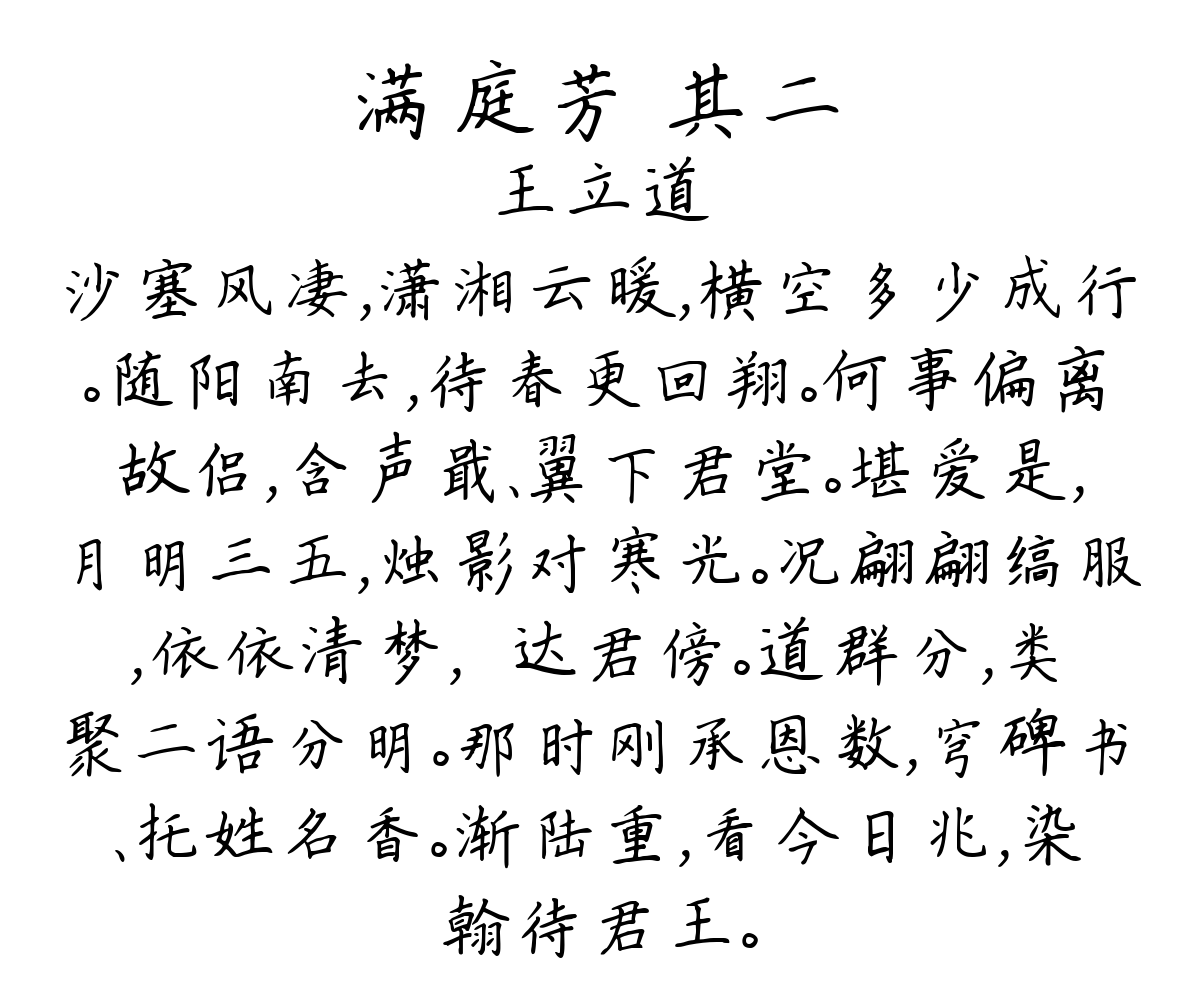 满庭芳 其二
王立道
沙塞风凄,潇湘云暖,横空多少成行
。随阳南去,待春更回翔。何事偏离
故侣,含声戢、翼下君堂。堪爱是,
月明三五,烛影对寒光。况翩翩缟服
,依依清梦, 达君傍。道群分,类
聚二语分明。那时刚承恩数,穹碑书
、托姓名香。渐陆重,看今日兆,染
翰待君王。